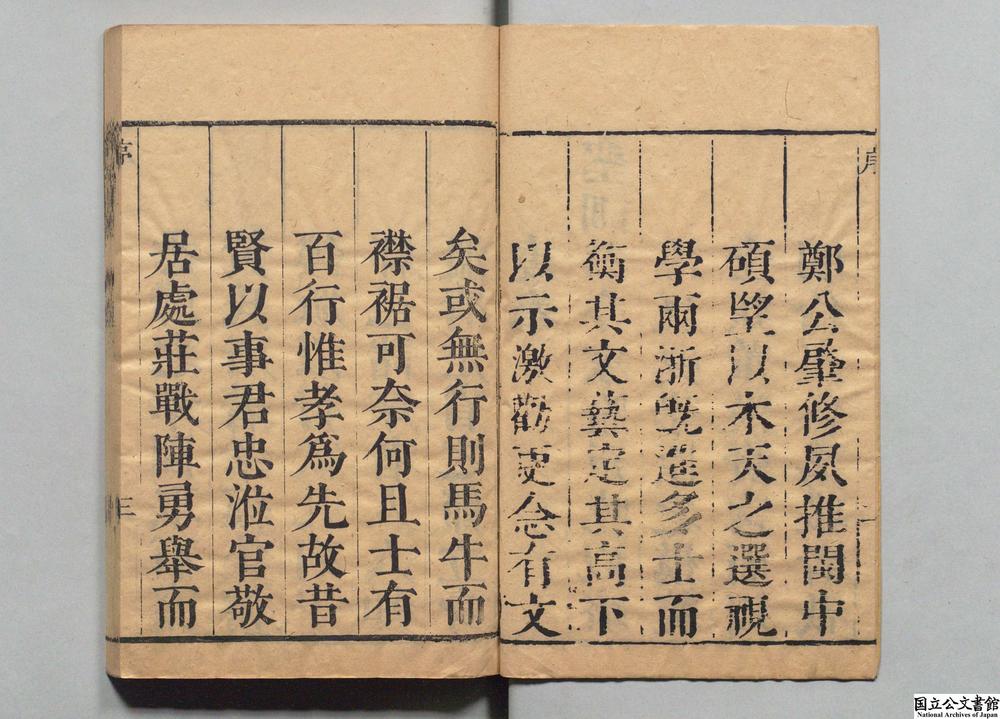 序
鄭公肇修夙推閩中
碩望以木天之選視
學兩浙旣進多士而
衡其文藝定其高下
以示激勸更念有文
矣或無行則馬牛而
襟裾可奈何且士有
百行惟孝爲先故昔
賢以事君忠涖官敬
居處莊戰陣勇舉而
序
三
国立公文書館
National Archives of Japan